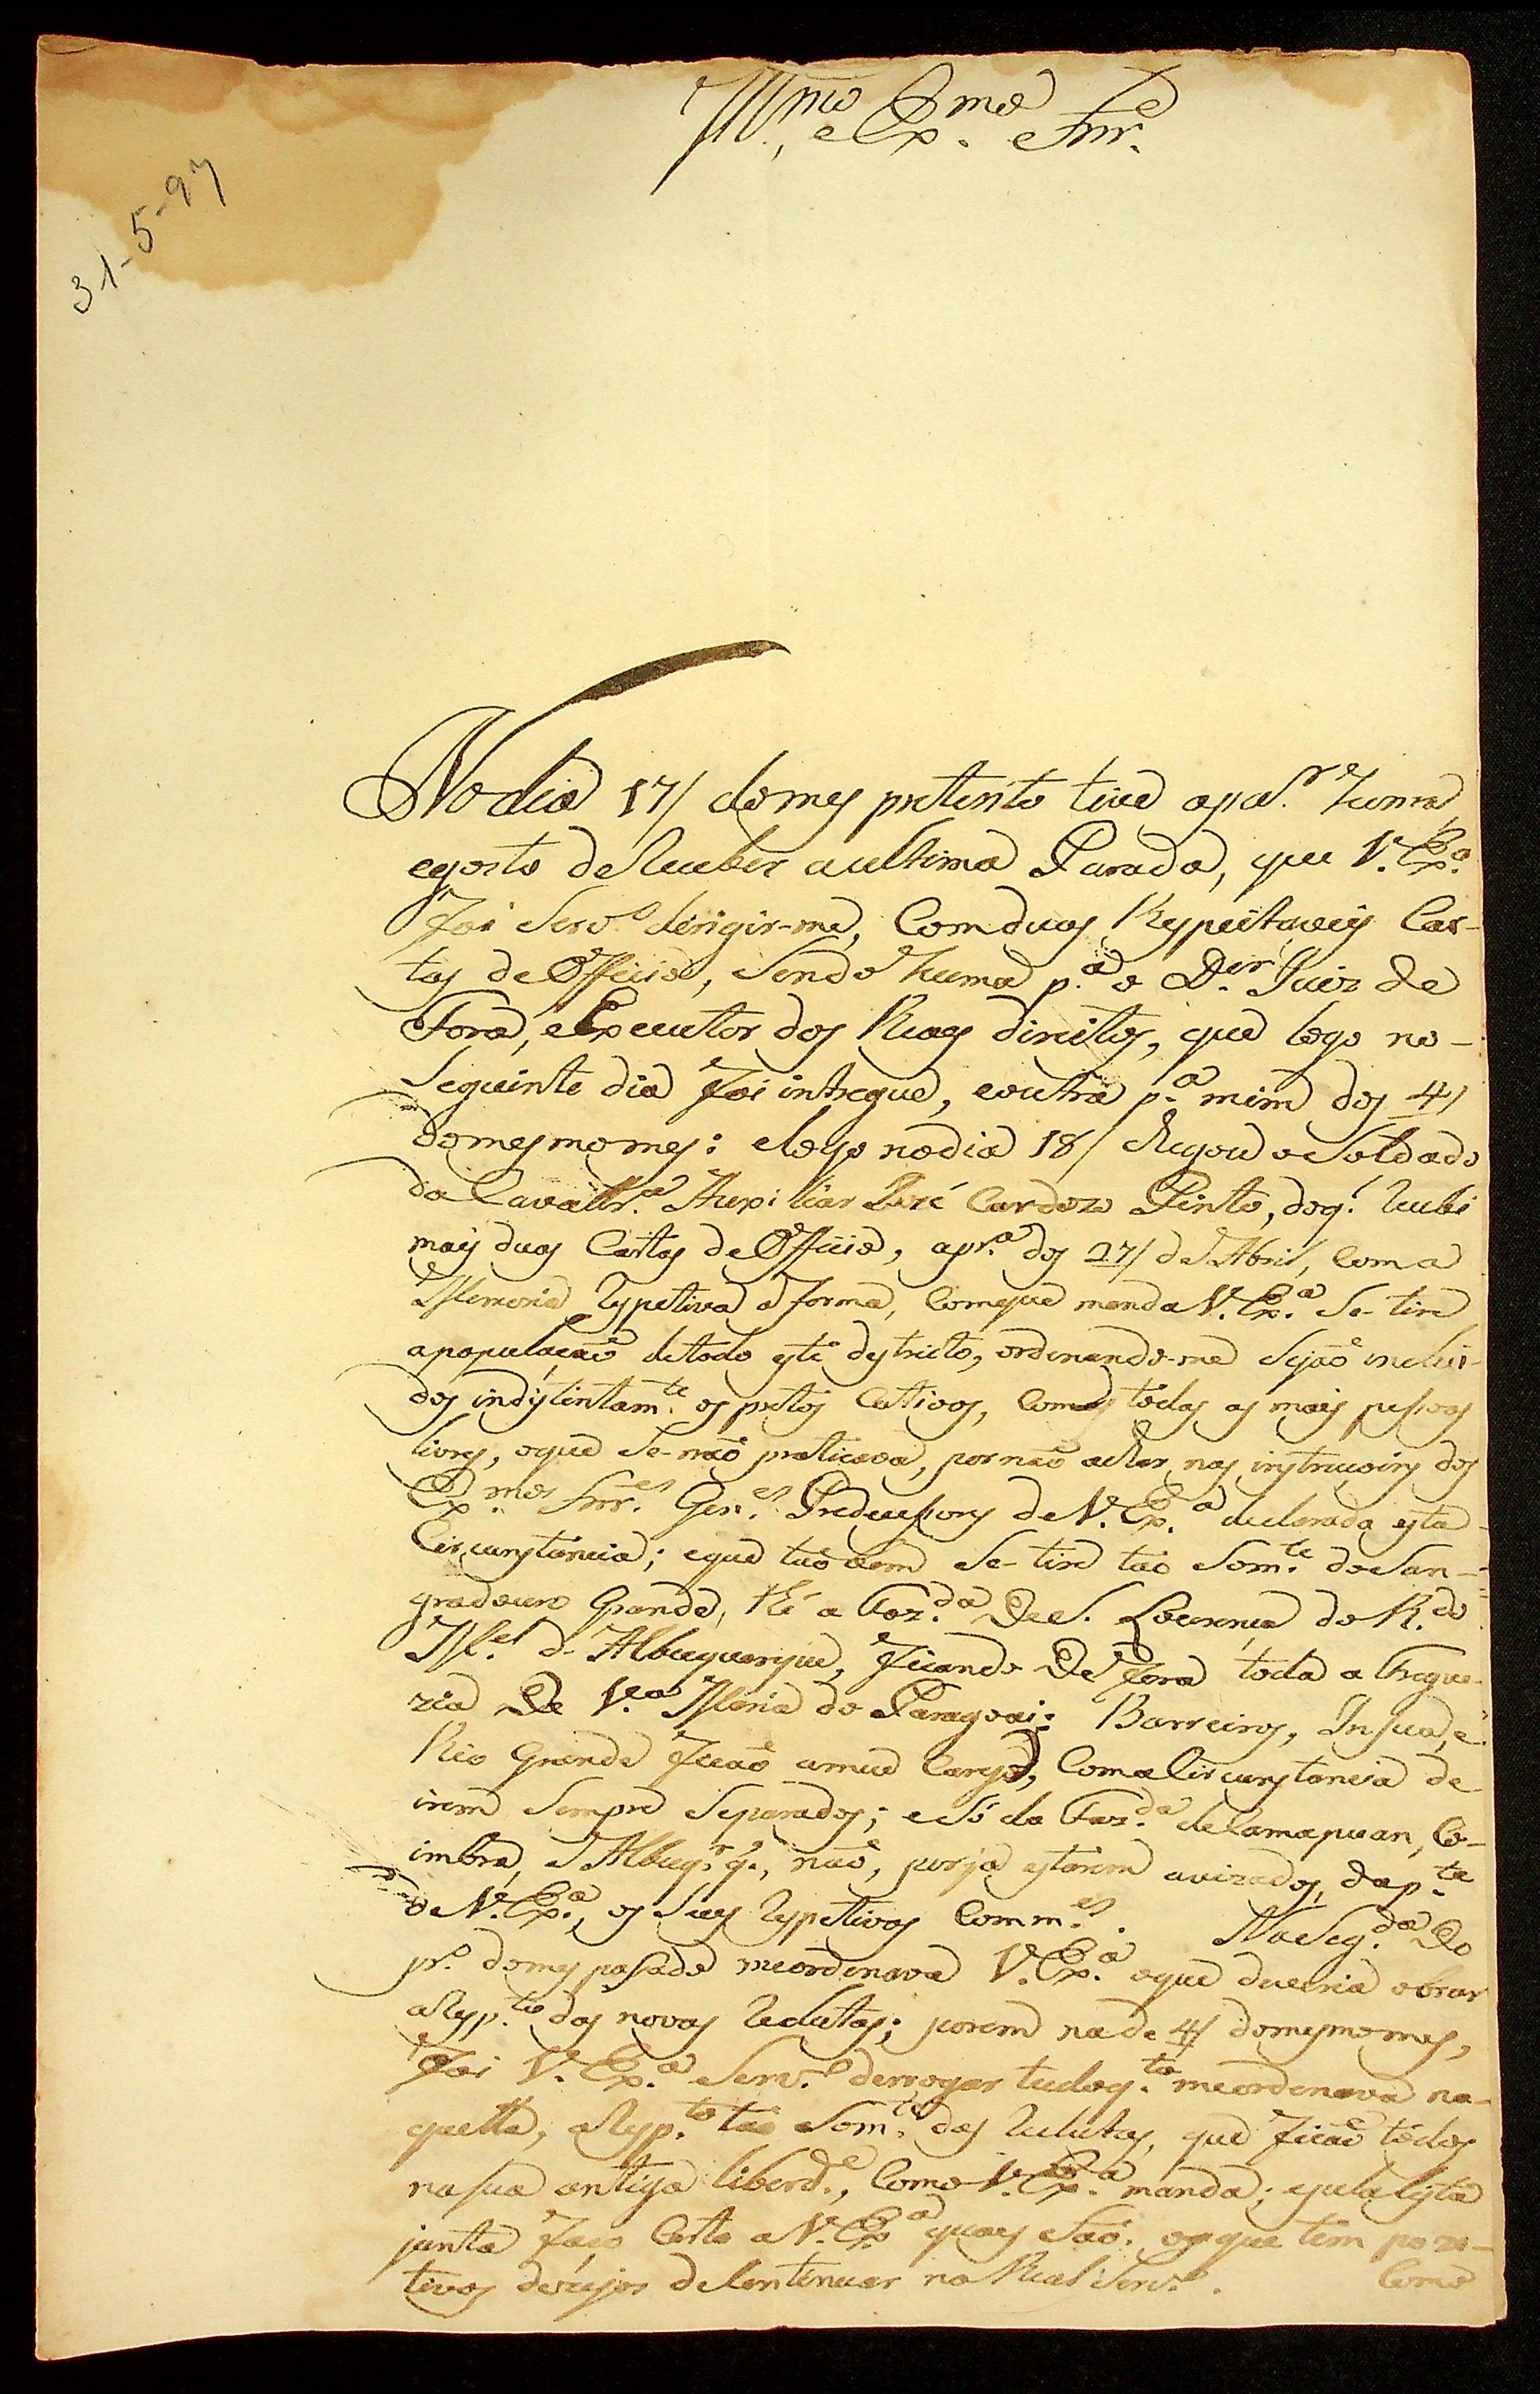 Ill.mo e Ex.mo Snr.
31-5-97
No dia 17/ do mes preterito tive a pal. huma
e gosto de receber a ultima Parada, que V. Ex.a
foi Serv.o dirigir-me, Com duas Respeitaveis Car-
tas de Officio, Sendo huma p.a o D.or Juiz de
Fora, e Executor dos Reaes direitos, que logo no-
Seguinte dia foi intregue, e outra p.a mim dos 4/
do mesmo mes: e logo no dia 18/ chegou o Soldado
da Cavallr.a Auxiliar José Cardozo Pinto, do q.l recebi
mais duas Cartas de Officio, a pr.a dos 27/ de Abril, Com a
Memoria respetiva a forma, Com que manda V. Ex.a Se-tire
a populaçaõ de todo este destricto, ordenando-me Sejaõ inclui-
dos indistintam.te os pretos Cativos, Com as todas as mais pessoas
livres, o que Se-naõ praticava, por naõ achar nas instrucoins dos
Ex.mos Snr.es Gen.es Predecessores de V. Ex.a declarada esta-
Circunstancia; e que taõ bem Se-tire taõ Som.te do San-
gradouro Grande, thé a Faz.da De S. Lourenço do R.do
M.el d'Albuquerque, ficando De fora toda a Fregue-
zia De V.a Maria do Paragoai: Barreiros, Insua, e
Rio Grande ficaõ a meu Cargo, Com a Circunstancia de
irem Sempre Separados; e Só da Faz.da de Camapuan, Co-
imbra, e Albuq.r q.e, naõ, por ja estarem avizados, da p.te
de V. Ex.a, os Seus respetivos Comm.es. Na Seg.da Do
pr.o do mes pasado me ordenava V. Ex.a o que deveria obrar
a Resp.to das novas recrutas; porem na de 4/ do mesmo mes,
foi V. Ex.a Serv.o derrogar tudo q.to me ordenava na-
quella, a Resp.to taõ Som.te das recrutas, que ficaõ todos
na sua antiga liberd.e, Como V. Ex.a manda; e pela lista
junta faço Certo a V. Ex.a quaes Saõ os que tem pozi-
tivos dezejos de Continuar no Real Serv.o. Como